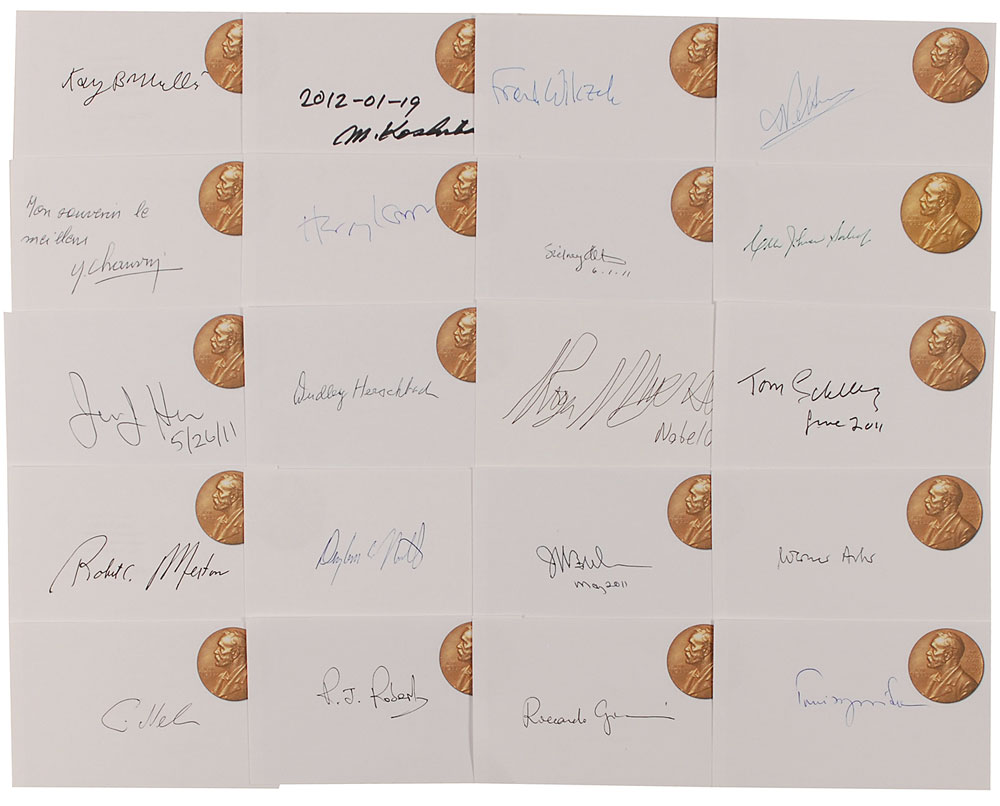 Kary B Mullis
2012-01-19
M. Koshiba
Frank Wilczek
Mon souvenir le
meilleur
Y. Chauvin
Harry Kroto
Sidney Alt
6.1.11
5/26/11
Dudley Herschbach
Roger Myerson
Nobel
Tom Schelling
June 2011
Robert C. Merton
Douglass C. North
May 2011
Werner Arber
C. Mello
R. J. Roberts
Riccardo Giacconi